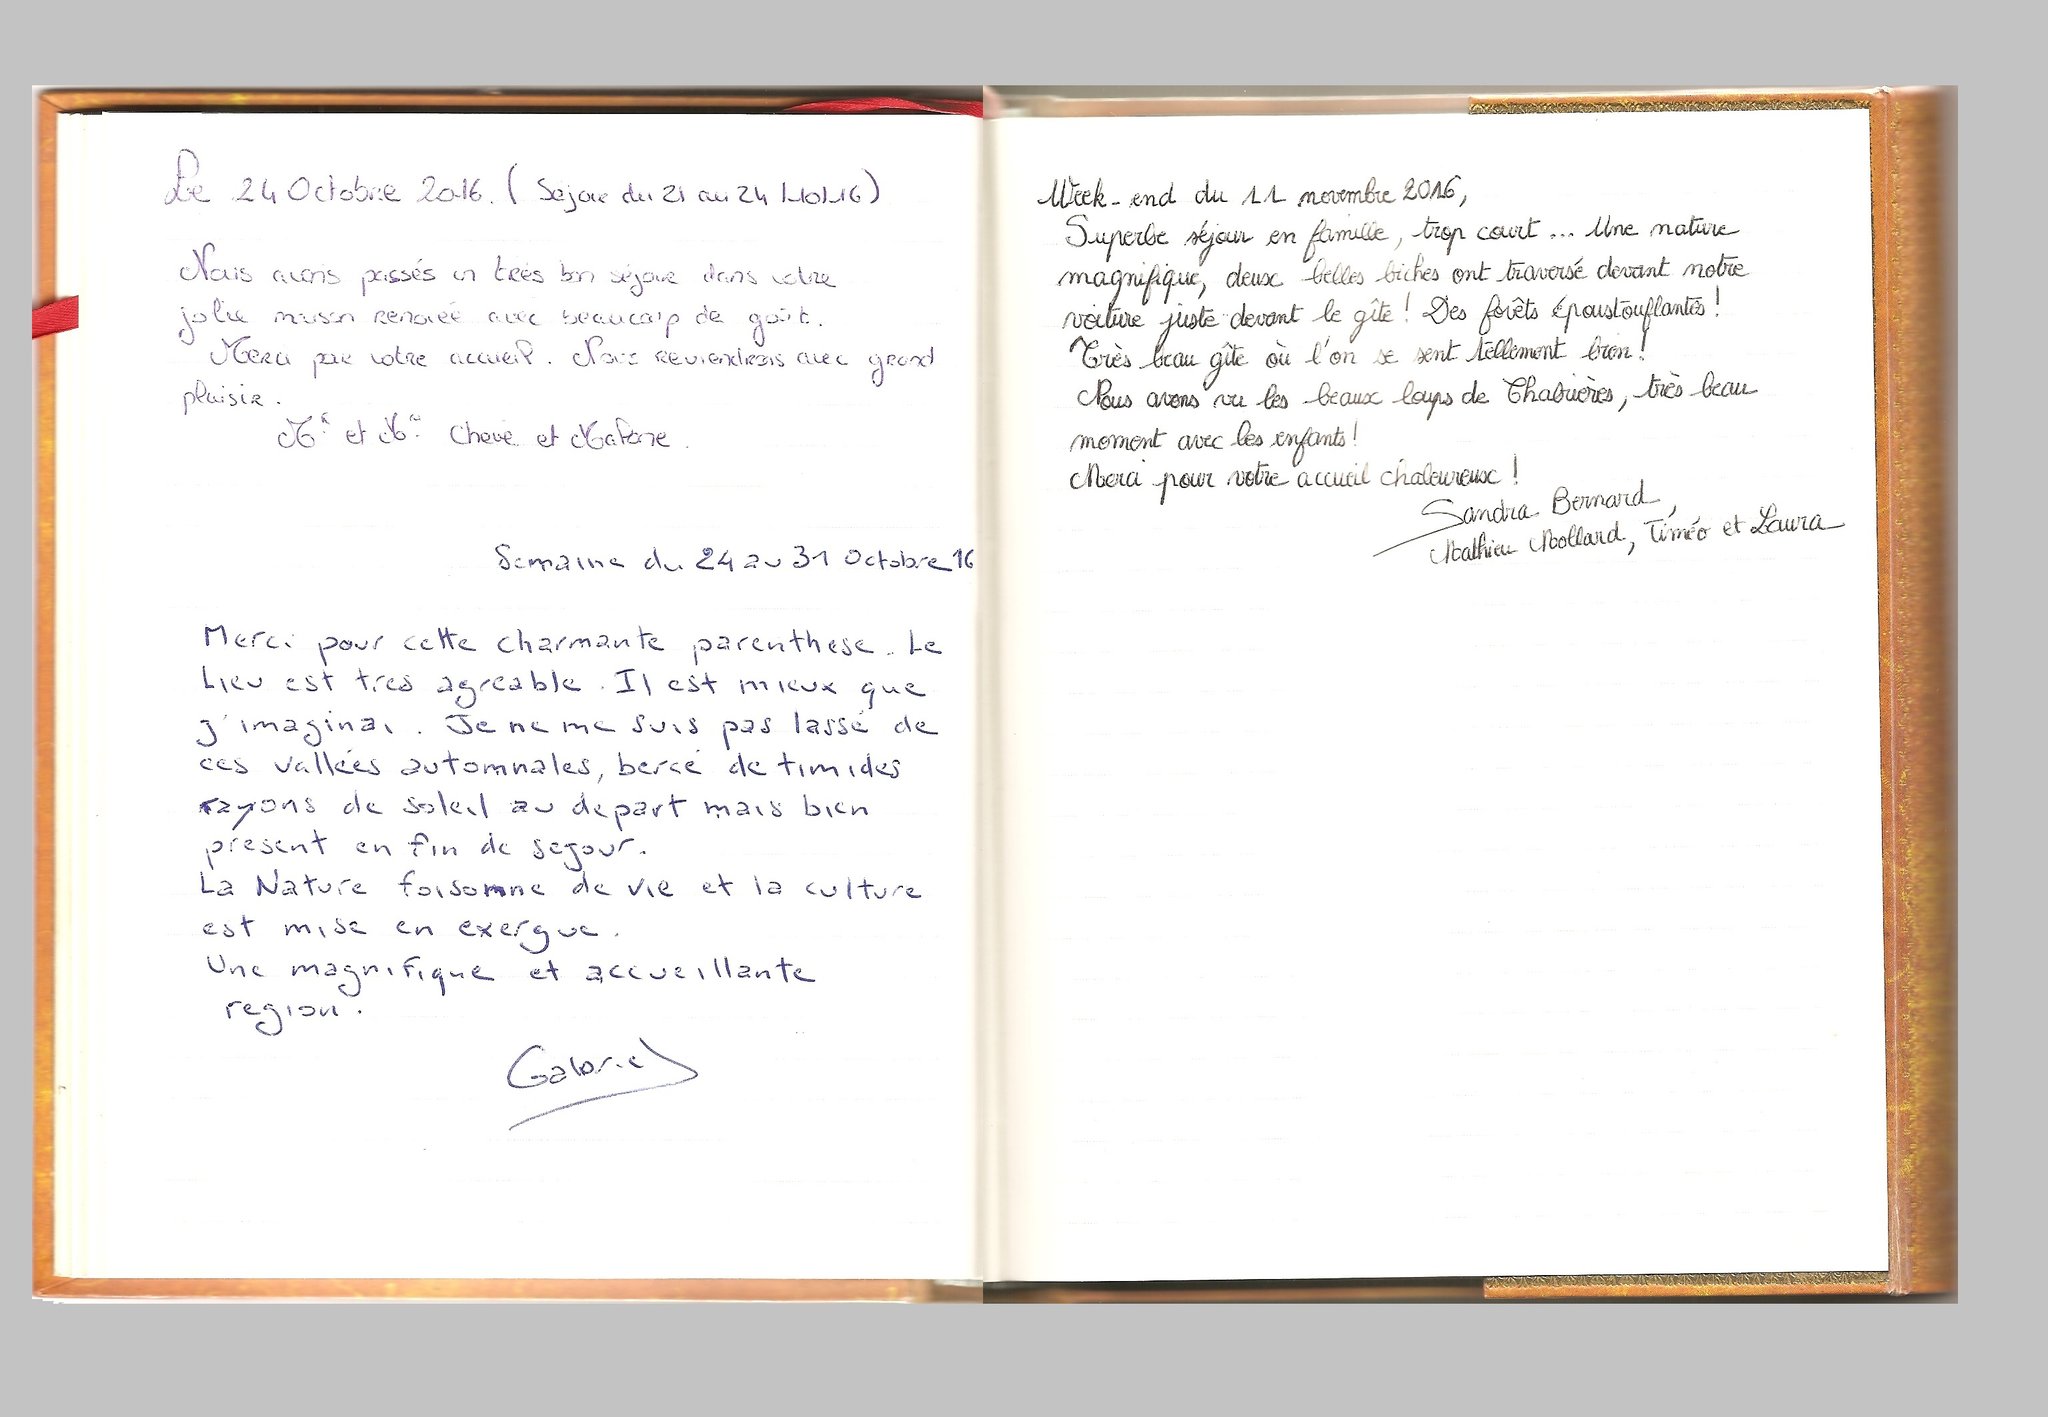 Le 24 Octobre 2016. (Séjour du 21 au 24 |10|16)
Nous avons passés un très bon séjour dans votre
jolie maison renovée avec beaucoup de goût.
Merci pour votre accueil. Nous reviendrons avec grand
plaisir.
Mr et Mme Chevé et
Semaine du 24 au 31 Octobre 16
Merci pour cette charmante parenthese. Le
Lieu est tres agreable. Il est mieux que
j'imaginai. Je ne me suis pas lassé de
ces vallées automnales, bercé de timides
rayons de soleil au depart mais bien
present en fin de sejour.
La Nature foisomne de vie et la culture
est mise en exergue.
Une magnifique et accueillante
region.
Gabriel
Week-end du 11 novembre 2016,
Superbe séjour en famille, trop court... Une nature
magnifique, deux belles biches ont traversé devant notre
voiture juste devant le gîte ! Des forêts époustouflantes !
Très beau gîte où l'on se sent tellement bien !
Nous avons vu les beaux loups de Chabrières, très beau
moment avec les enfants !
Merci pour votre accueil chaleureux !
Sandra Bernard,
Mathieu Mollard, Timéo et Laura